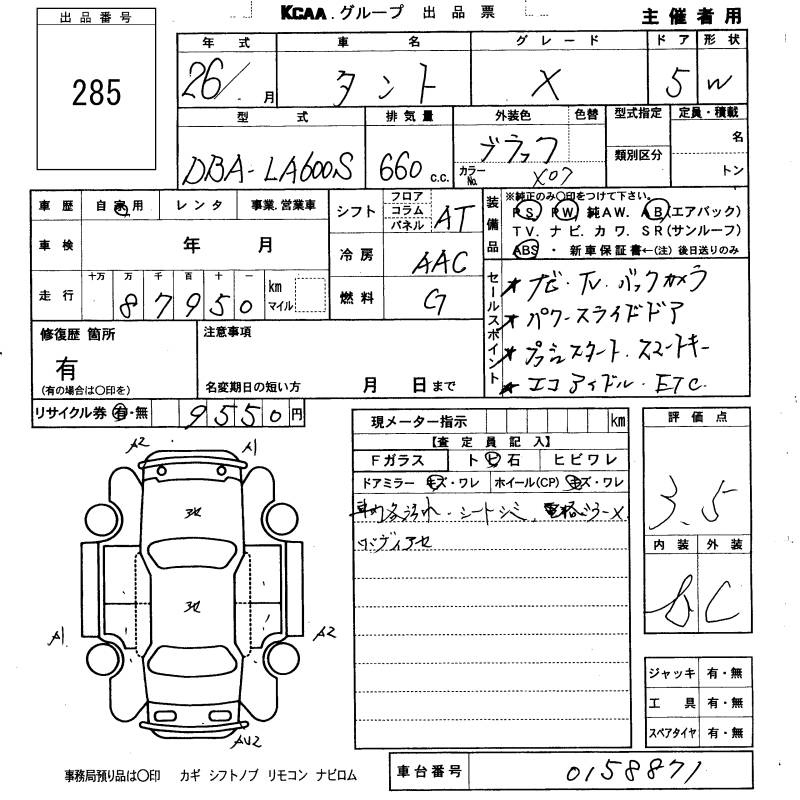 KCAA.グループ 出品票
主催者用
出品番号
285
年式 車名 グレード ドア 形状
26/ 月 タント X 5 W
型式 排気量 外装色 色替 型式指定 定員・積載
DBA-LA600S 660 c.c. ブラック 類別区分 名
カラーNo. X07 トン
車歴 自家用 レンタ 事業.営業車
車検 年 月
走行 十万 万 千 百 十 一
87950 km マイル
シフト フロア コラム パネル AT
冷房 AAC
燃料 G
装備品
※純正のみ〇印をつけて下さい。
PS PW 純AW. AB(エアバック)
TV. ナビ. カワ. SR(サンルーフ)
ABS ・ 新車保証書←(注)後日送りのみ
セールスポイント
★ナビ・TV・バックカメラ
★パワースライドドア
★プッシュスタート.スマートキー
★エコアイドル・ETC.
修復歴 箇所
有
(有の場合は〇印を)
注意事項
名変期日の短い方 月 日まで
リサイクル券 有・無 9550円
現メーター指示 km
【査定員記入】
Fガラス トビ石 ヒビワレ
ドアミラー キズ・ワレ ホイール(CP) キズ・ワレ
車内各汚れ・シートシミ、電格ミラーX
ワンディアセ
評価点
3.5
内装 外装
b C
A2 A1
A1 A2
AU2
ジャッキ 有・無
工具 有・無
スペアタイヤ 有・無
事務局預り品は〇印 カギ シフトノブ リモコン ナビロム
車台番号 0158871